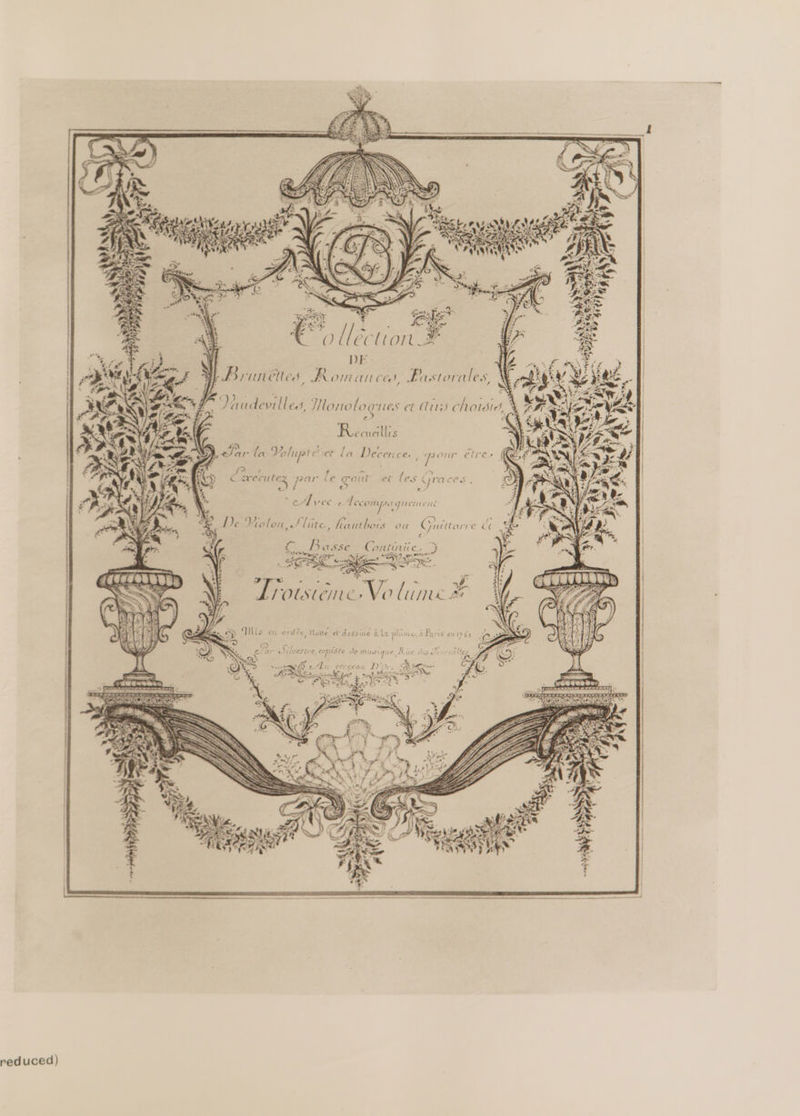 1
Collection
DE
Brunettes, Romances, Pastorales,
Vaudevilles, Monologues et Airs choisis,
Recueillis
Par la Volupté et la Décence, pour être
Exécutez par le goût et les Graces.
Avec Accompagnement
De Violon, Flûte, hautbois ou Guittarre et
Basse Continüe.
Troisième Volume
Mis en ordre, Noté et dessiné à la plume, à Paris
Par Silvestre, copiste de musique, Rue
reduced)